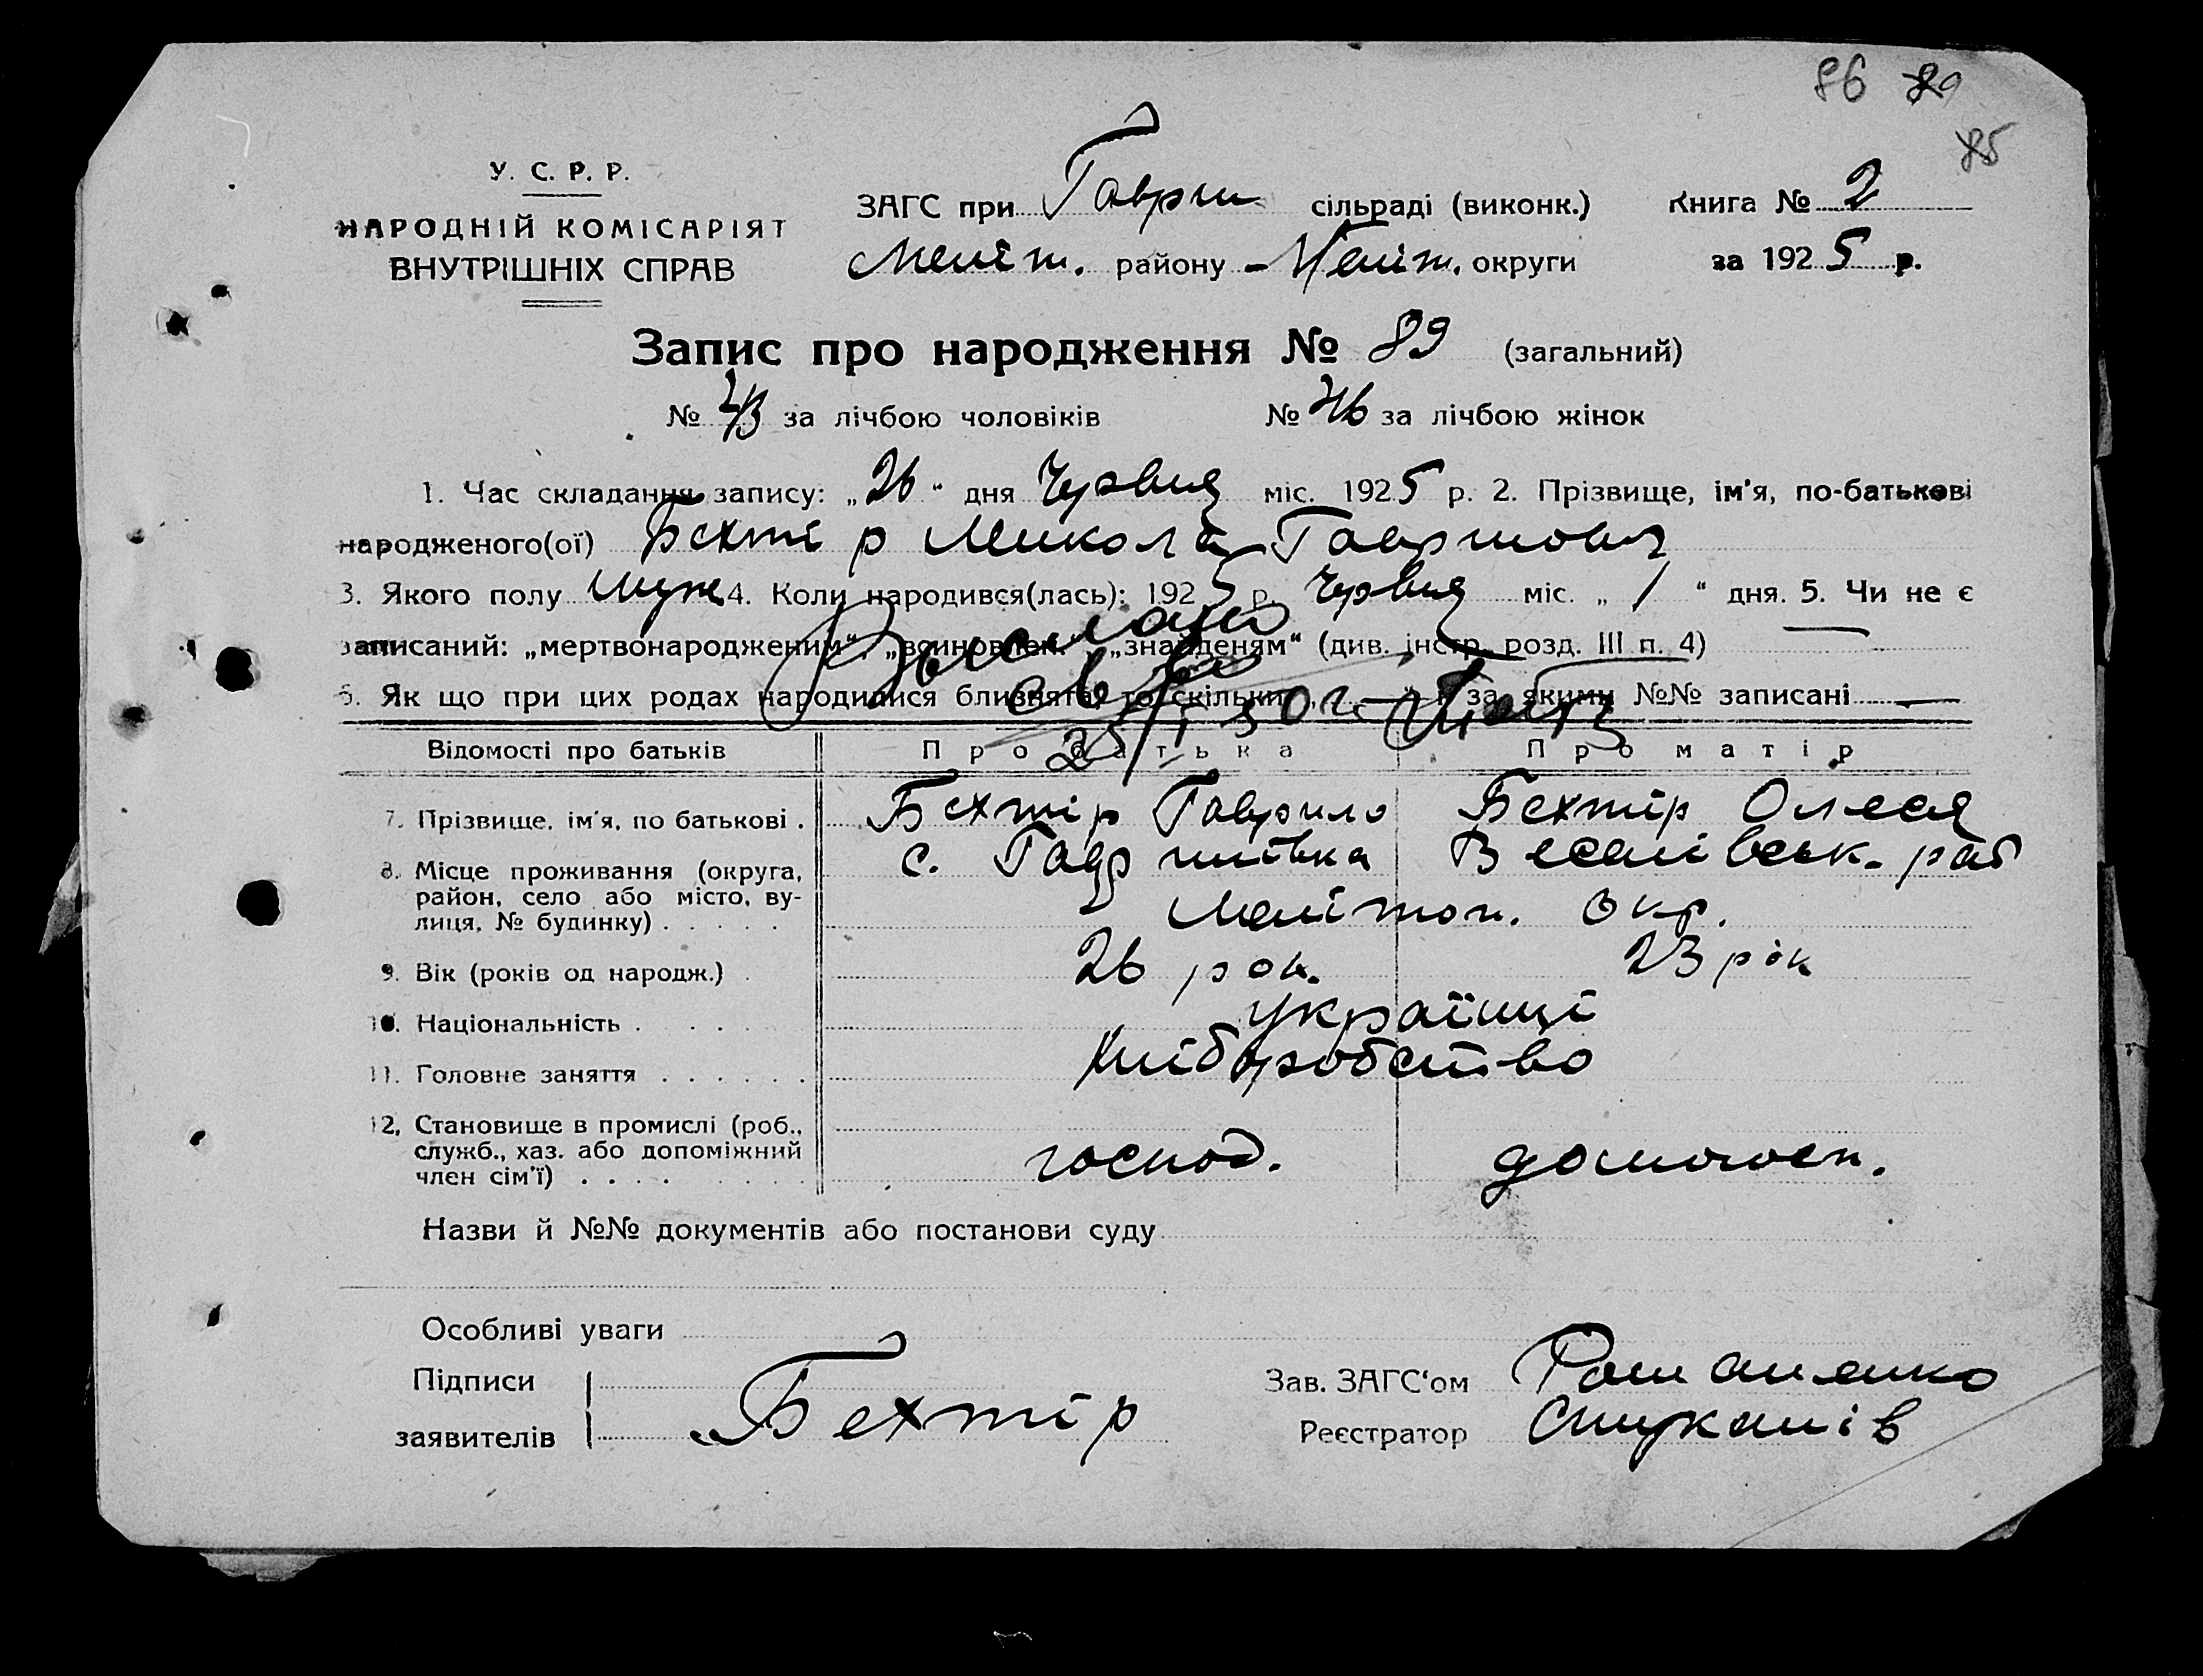 86 89
85
У. С. Р. Р.
НАРОДНІЙ КОМІСАРІЯТ
ВНУТРІШНІХ СПРАВ
ЗАГС при Гаврил сільраді (виконк.) Книга № 2
Меліт. району Меліт. округи за 1925 р.
Запис про народження № 89 (загальний)
№ 43 за лічбою чоловіків № 46 за лічбою жінок
1. Час складання запису: „26“ дня Червня міс. 1925 р. 2. Прізвище, ім'я, по-батькові
народженого(ої) Бехтір Микола Гаврилович
3. Якого полу муж 4. Коли народився(лась): 1925 р. Червня міс. „1“ дня. 5. Чи не є
записаний: „мертвонародженим“, „знайденям“ (див. інстр. розд. III п. 4) —
6. Як що при цих родах народилися близнята, то скільки — за якими №№ записані —
Выслано
Відомості про батьків Про батька Про матір
7. Прізвище, ім'я, по батькові . Бехтір Гаврило Бехтір Олеся
8. Місце проживання (округа, район, село або місто, вулиця, № будинку) . . . . . с. Гаврилівка Веселівськ. рай
Мелітоп. окр.
9. Вік (років од народж.) . 26 рок. 23 рік
10. Національність . . . . українці
11. Головне заняття . . . . . . хліборобство
12. Становище в промислі (роб., служб., хаз. або допоміжний член сім'ї) . . . . господ. домогосп.
Назви й №№ документів або постанови суду
Особливі уваги
Підписи заявителів Бехтір
Зав. ЗАГС'ом Романенко
Реєстратор Стукалів